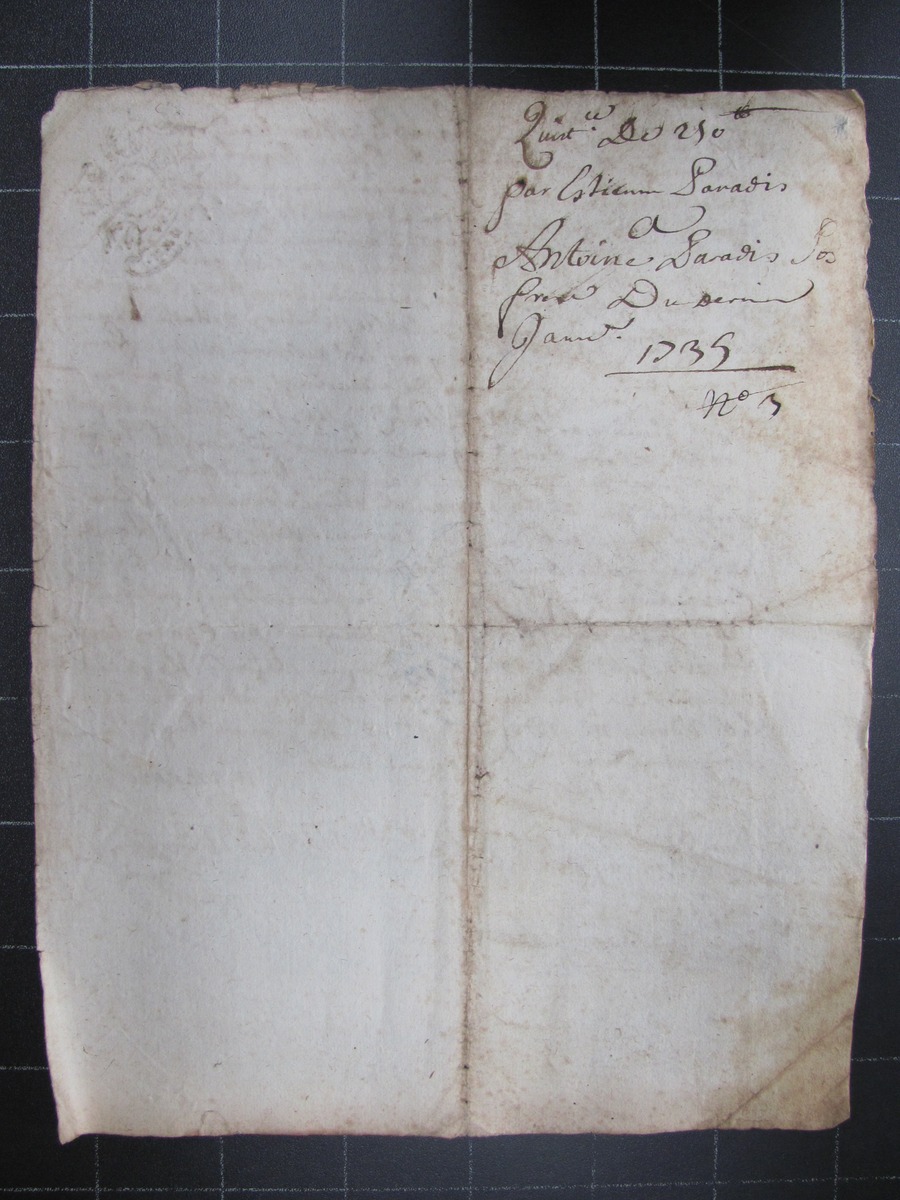 Quitt.ce De 250 tt
par Estienne Paradis
a
Antoine Paradis Son
frere Du dernier
Janv.r
1735
No 3